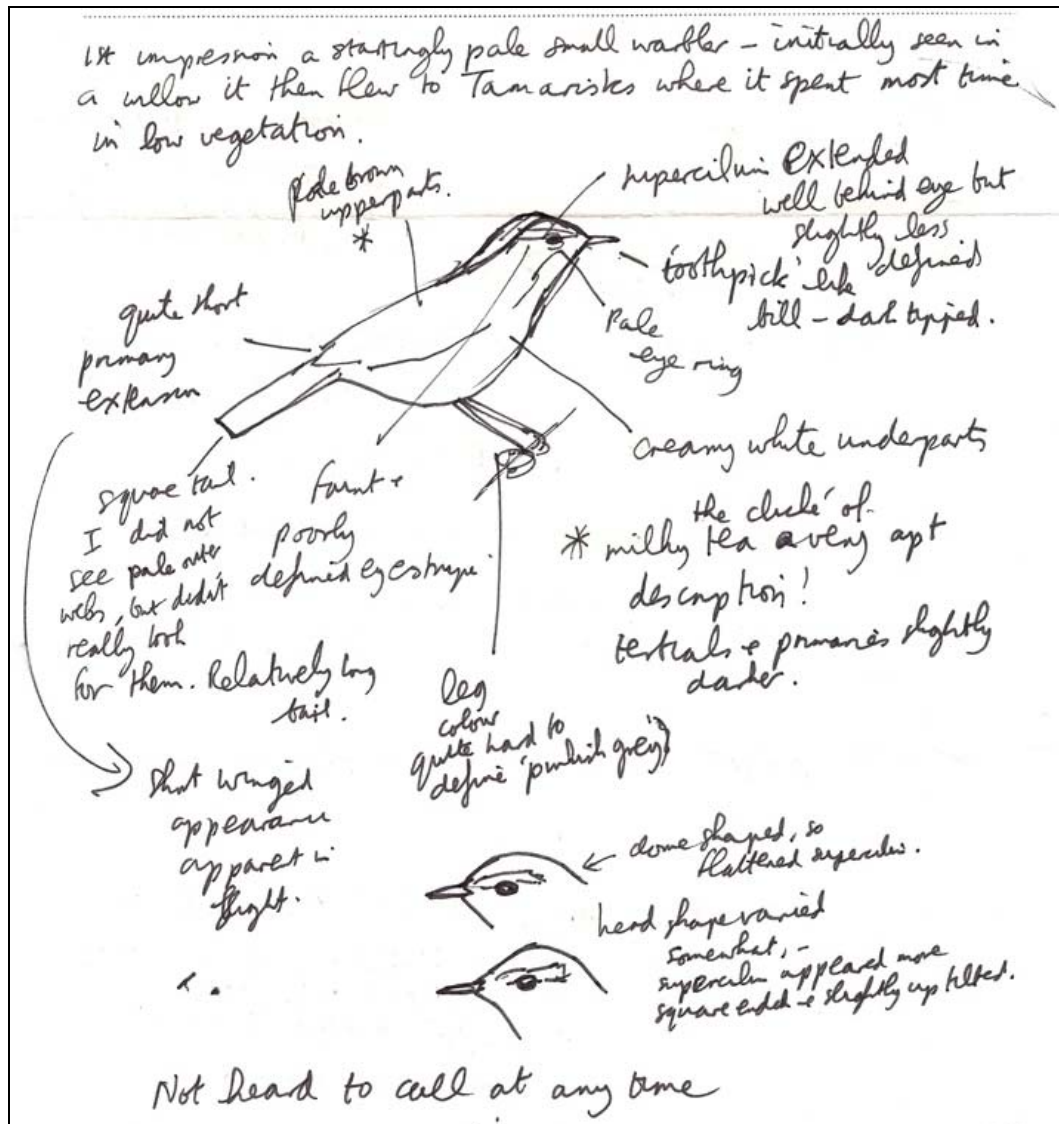 1st impression a startlingly pale small warbler – initially seen in
a willow it then flew to Tamarisks where it spent most time
in low vegetation.
Pale brown
upperparts.
*
supercilium extended
well behind eye but
slightly less
defined
'toothpick' like
bill – dark tipped.
Pale
eye ring
quite short
primary
extension
creamy white underparts
square tail.
I did not
see pale outer
webs, but didn't
really look
for them. Relatively long
tail.
faint +
poorly
defined eyestripe
the cliché of
* milky tea a very apt
description!
tertials + primaries slightly
darker.
leg
colour
quite hard to
define 'pinkish grey')
Short winged
appearance
apparent in
flight.
dome shaped, so
flattened supercilium.
head shape varied
somewhat, –
supercilium appeared more
square ended + slightly up tilted.
Not heard to call at any time